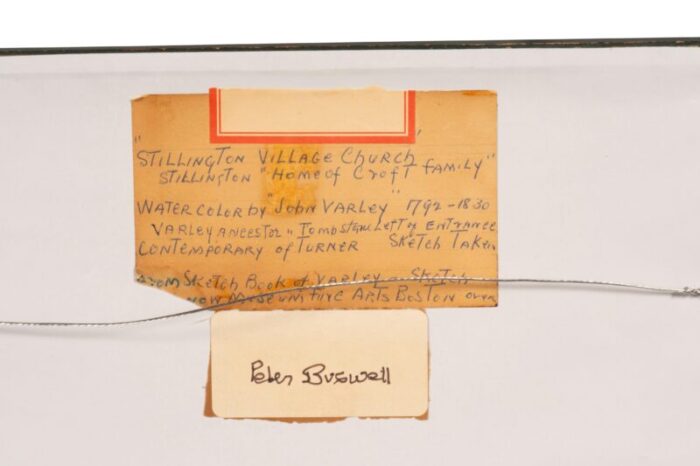 "STILLINGTON VILLAGE CHURCH
STILLINGTON "Home of CROFT FAMILY"
WATER COLOR by "JOHN VARLEY" 1792-1830
VARLEY ANCESTOR " TOMBSTONE LEFT of ENTRANCE
CONTEMPORARY of TURNER SKETCH TAKEN
FROM SKETCH BOOK of VARLEY SKETCH
NOW MUSEUM FINE ARTS BOSTON over
Peter Buswell